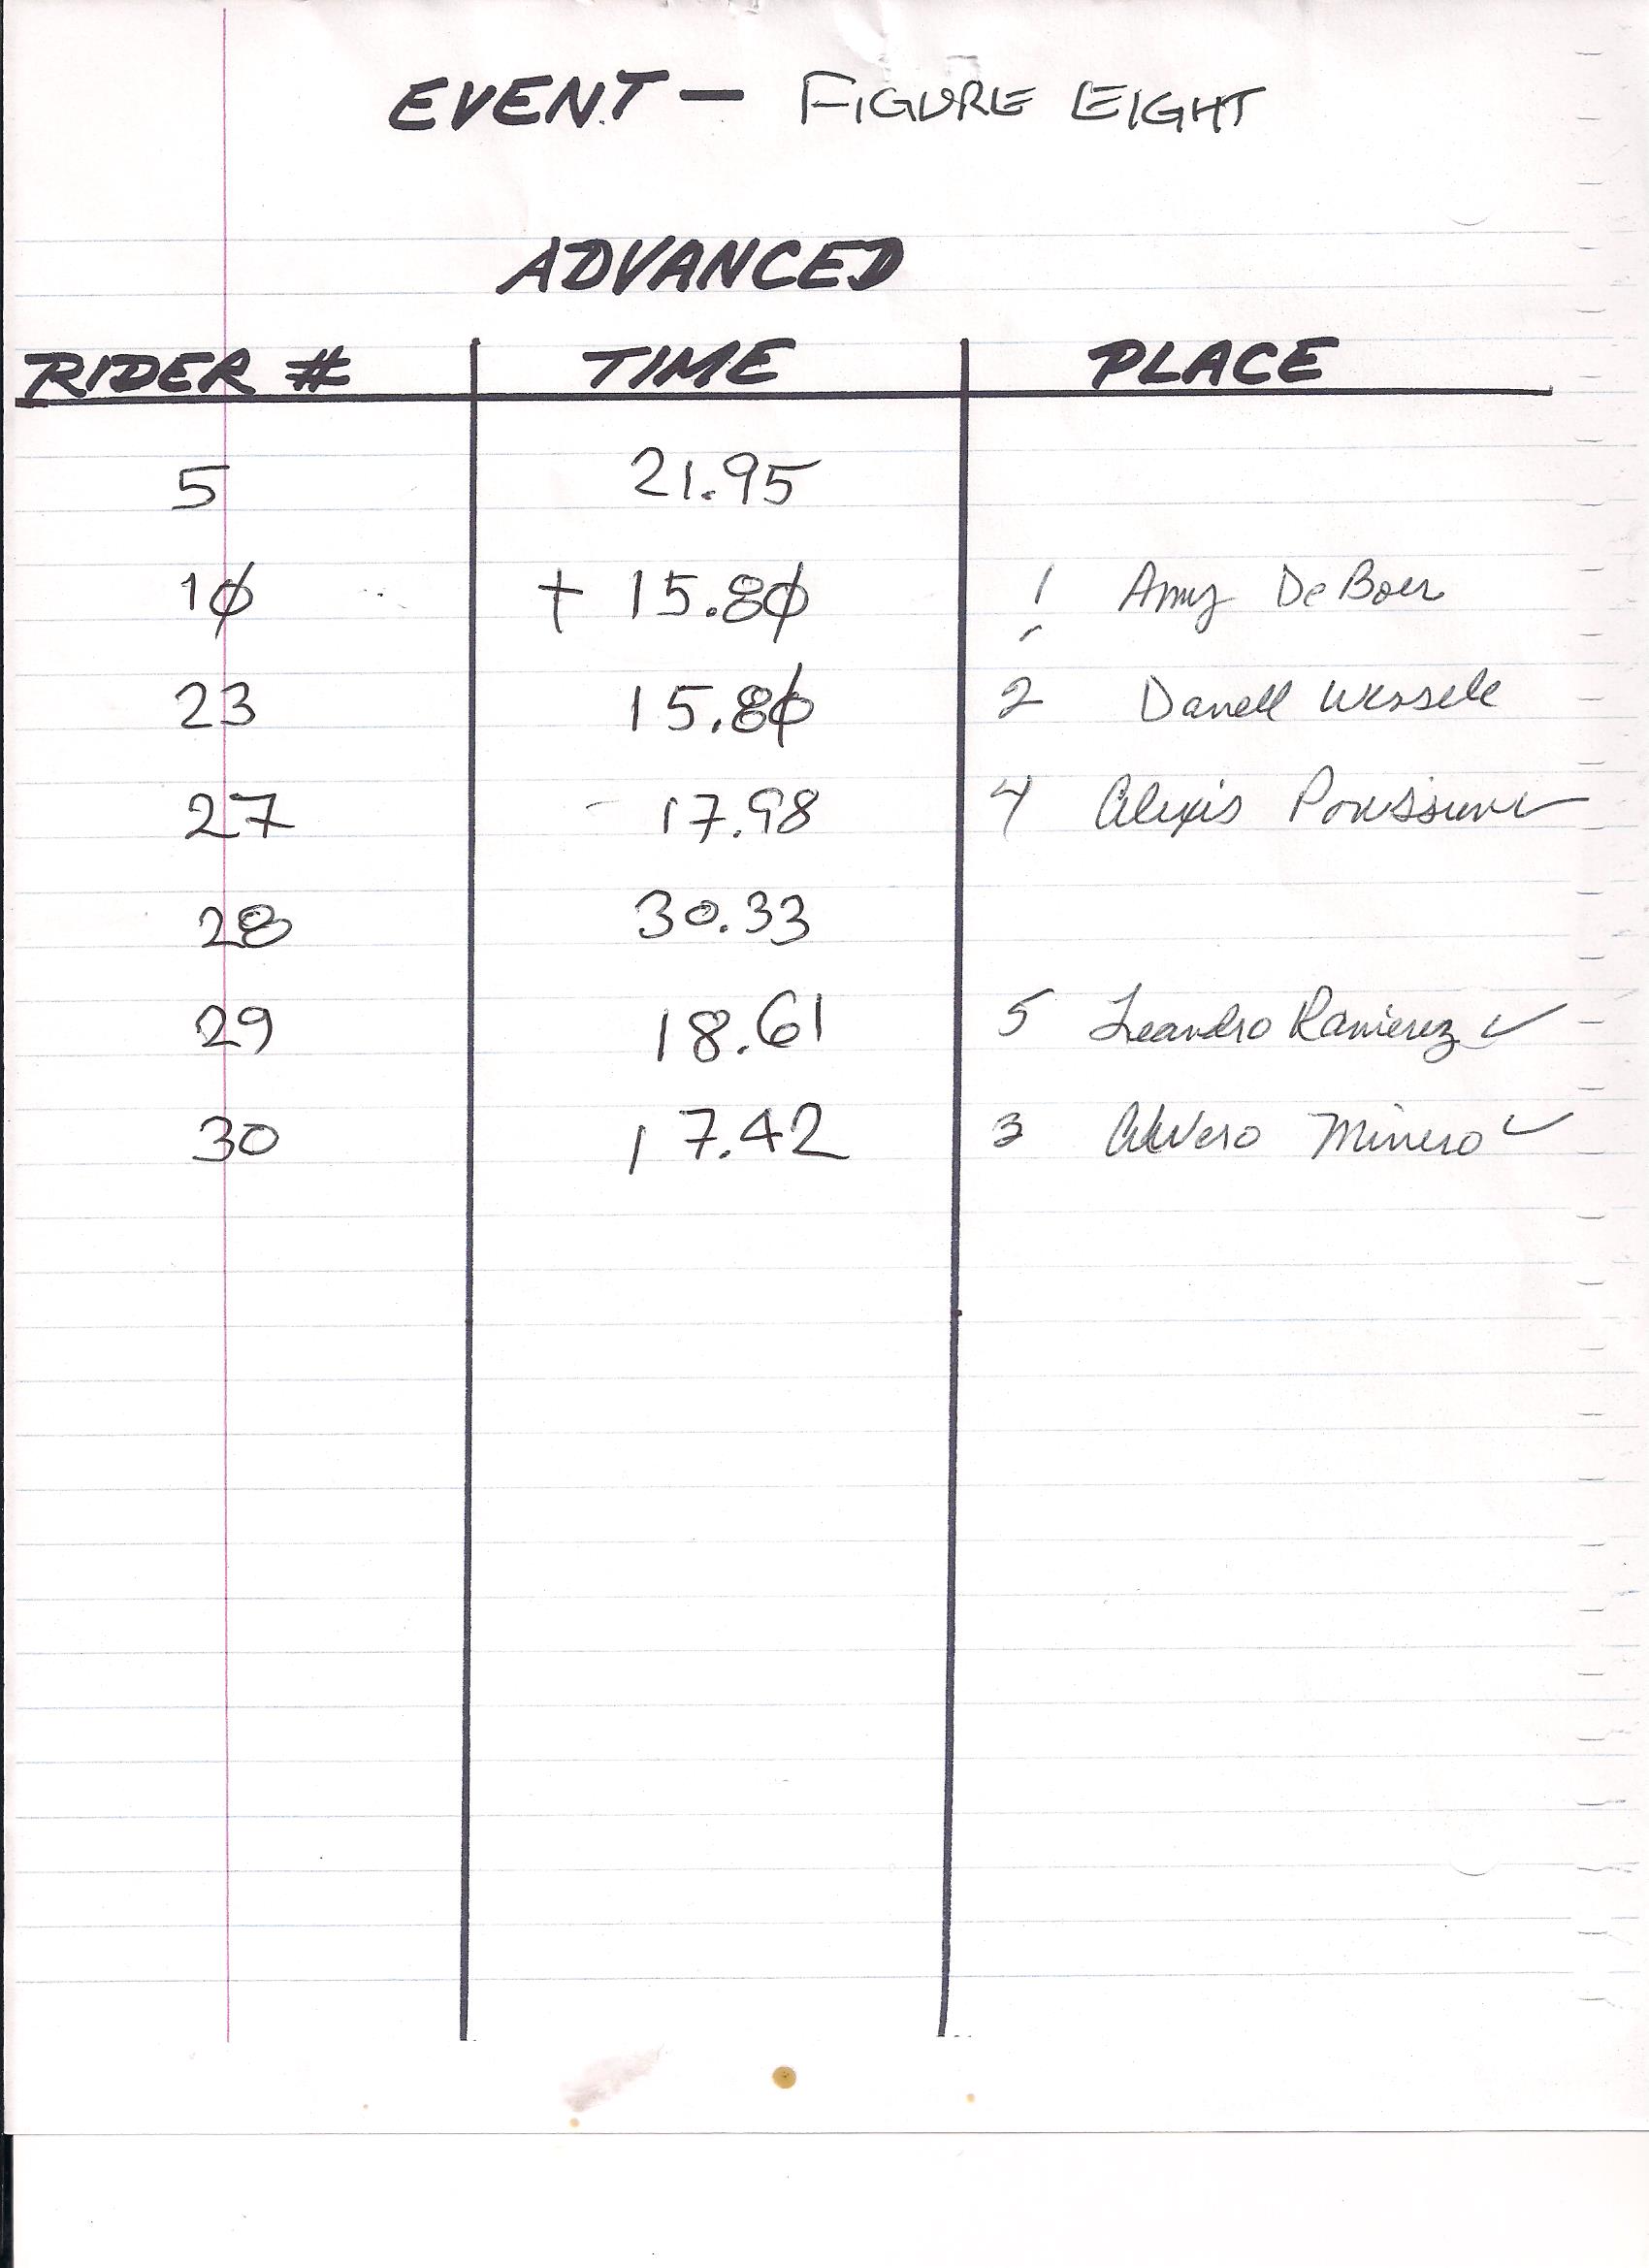 EVENT — FIGURE EIGHT
ADVANCED
RIDER # TIME PLACE
5 21.95
10 + 15.80 1 Amy DeBoer
23 15.80 2 Darrell
27 17.98 4 Alexis
28 30.33
29 18.61 5 Leandro Ramierez ✓
30 17.42 3 Alvero Minero ✓